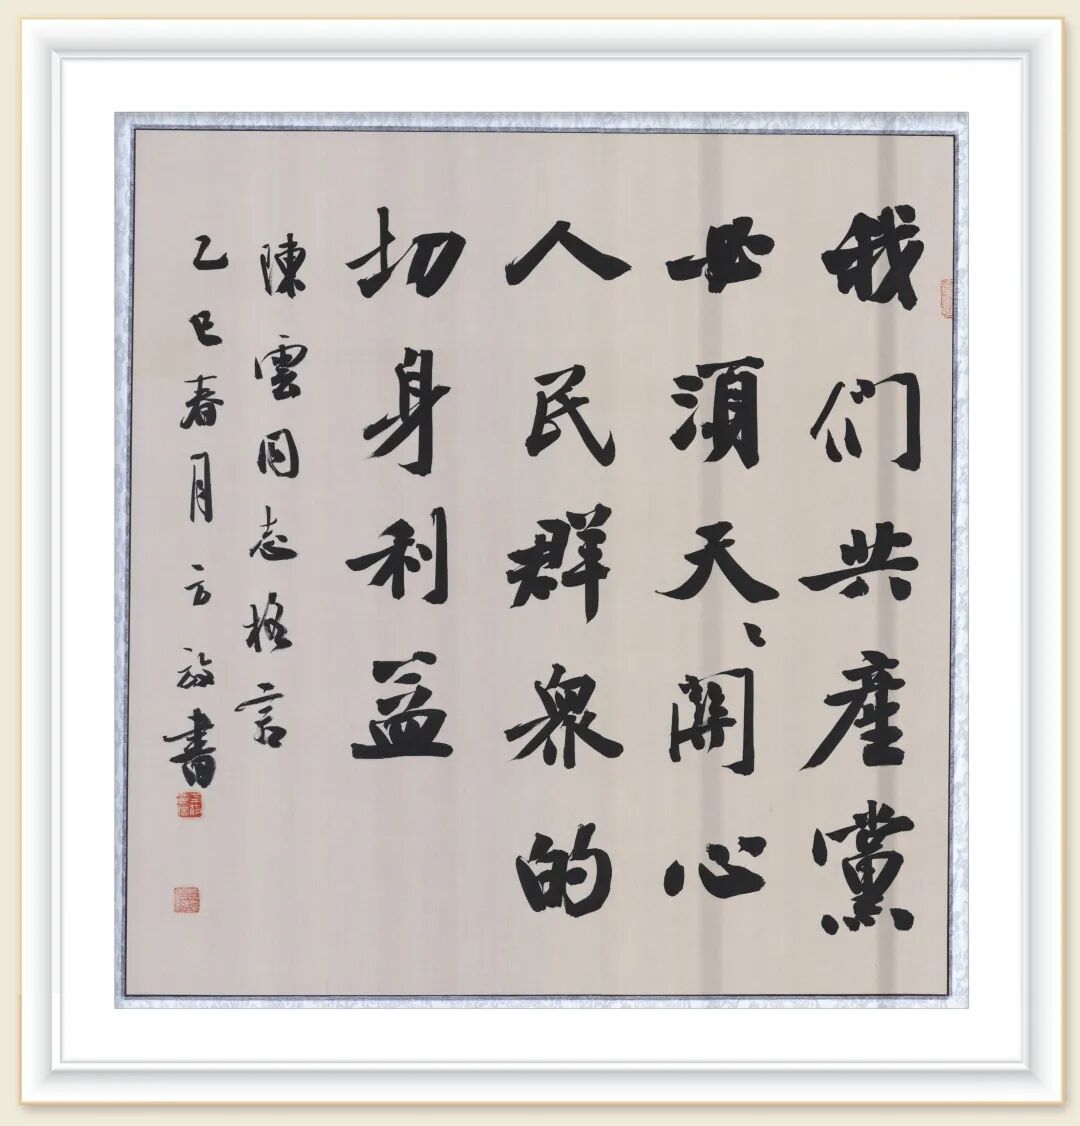 我们共产黨
必須天〻関心
人民群衆的
切身利益
陳雲同志格言
乙巳春月方放書